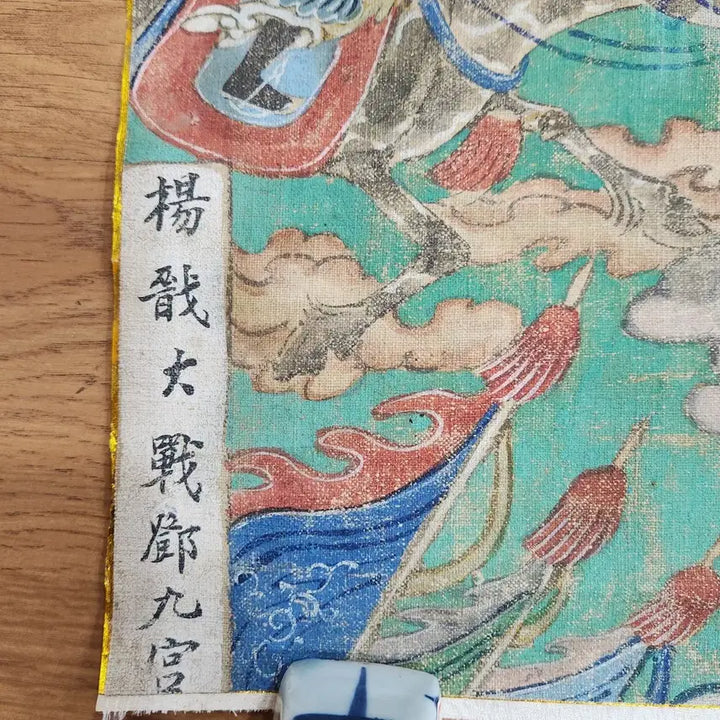 楊戩大戰鄧九宮